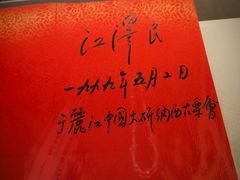 江澤民
一九九九年五月二日
于麗江中國大研納西古樂會